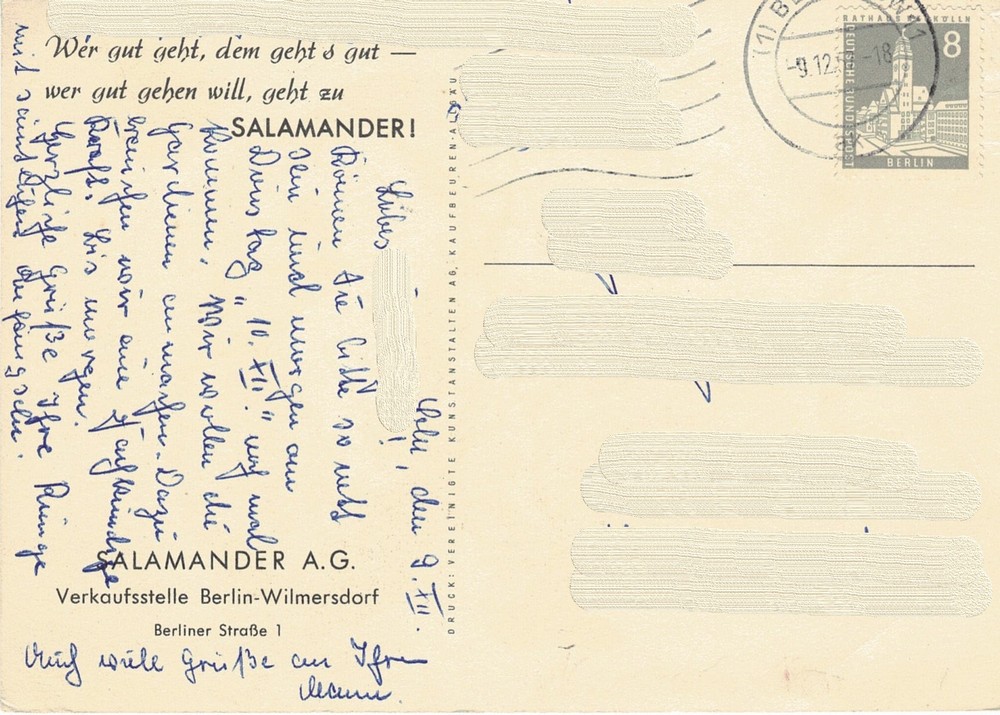 Wer gut geht, dem geht s gut —
wer gut gehen will, geht zu
SALAMANDER!
den 9. XII.
Liebes !
Können Sie bitte so nett
sein und morgen am
Dinstag „10. XII." noch mal
kommen. Wir wollen die
Gardienen anmachen. Dazu
brauchen wir eine Fachkundige
Kraft. Bis morgen.
Herzliche Grüße Ihre Runge
mit sämtlichen
SALAMANDER A.G.
Verkaufsstelle Berlin-Wilmersdorf
Berliner Straße 1
Auch viele Grüße an Ihren
Mann.
DRUCK: VEREINIGTE KUNSTANSTALTEN AG, KAUFBEUREN-ALLGÄU
(1) BERLIN SW 11
-9.12.5 -18
RATHAUS NEUKÖLLN
8
DEUTSCHE BUNDESPOST
BERLIN